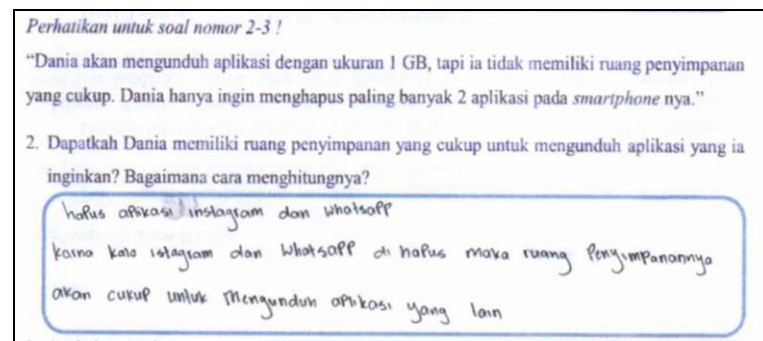 Perhatikan untuk soal nomor 2-3 !
“Dania akan mengunduh aplikasi dengan ukuran 1 GB, tapi ia tidak memiliki ruang penyimpanan
yang cukup. Dania hanya ingin menghapus paling banyak 2 aplikasi pada smartphone nya.”
2. Dapatkah Dania memiliki ruang penyimpanan yang cukup untuk mengunduh aplikasi yang ia
inginkan? Bagaimana cara menghitungnya?
hapus aplikasi instagram dan whatsapp
karna kalo istagram dan whatsapp di hapus maka ruang Penyimpanannya
akan cukup untuk mengunduh aplikasi yang lain